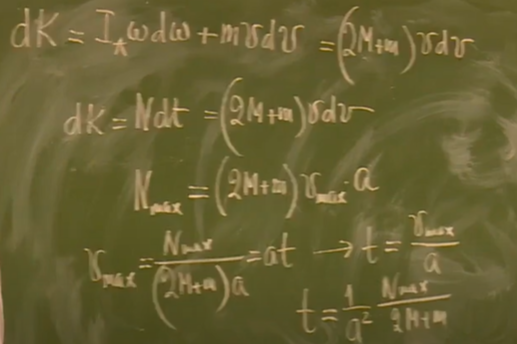 dK = I_A ω dω + m v dv = (2M+m) v dv
dK = N dt = (2M+m) v dv
N_max = (2M+m) v_max · a
v_max = N_max / (2M+m) a = at → t = v_max / a
t = 1/a² N_max / 2M+m